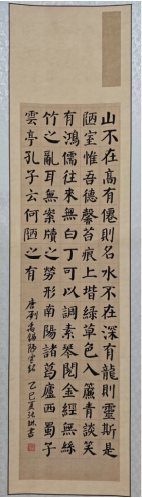 山不在高有僊則名水不在深有龍則靈斯是
陋室惟吾德馨苔痕上堦綠草色入簾青談笑
有鴻儒往來無白丁可以調素琴閱金經無絲
竹之亂耳無案牘之勞形南陽諸葛廬西蜀子
雲亭孔子云何陋之有 唐劉禹錫陋室銘 乙巳夏